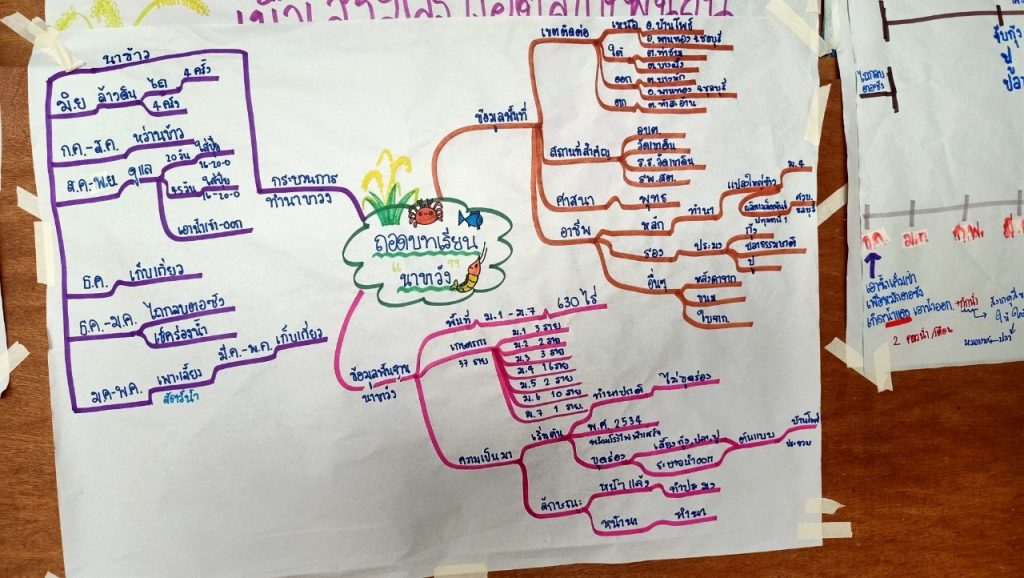 ถอดบทเรียน
"นาขาวัง"
กระบวนการ
ทำนาขาวัง
นาข้าว
มิ.ย ล้าวดิน ไถ 4 ครั้ง
4 ครั้ง
ก.ค.-ส.ค. หว่านข้าว
ส.ค-พ.ย ดูแล 20 วัน ใส่ปุ๋ย
16-20-0
45 วัน ใส่ปุ๋ย
16-20-0
เอาน้ำเข้า-ออก
ธ.ค. เก็บเกี่ยว
ธ.ค.-ม.ค. ไถกลบตอซัง
เช็คร่องน้ำ
ม.ค-พ.ค. เพาะเลี้ยง
สัตว์น้ำ
มี.ค.-พ.ค. เก็บเกี่ยว
ข้อมูลพื้นที่
เขตติดต่อ
เหนือ อ.บ้านโพธิ์
อ.พานทอง จ.ชลบุรี
ใต้ ต.ท่าข้าม
ออก
อ.พานทอง จ.ชลบุรี
ตก ต.ท่าสะอ้าน
สถานที่สำคัญ
อบต.
วัดเขาดิน
ร.ร.วัดเขาดิน
รพ.สต.
ศาสนา พุทธ
อาชีพ
หลัก ทำนา แปลงใหญ่ข้าว ม.4
รอง ประมง
กุ้ง
ปลาธรรมชาติ
ปู
อื่นๆ
ขนม
ใบจาก
ข้อมูลพื้นฐาน
นาขาวัง
พื้นที่ ม.1 - ม.7 630 ไร่
เกษตรกร
37 ราย
ม.1 3 ราย
ม.2 2 ราย
ม.3 3 ราย
ม.4 16 ราย
ม.5 2 ราย
ม.6 10 ราย
ม.7 1 ราย.
ความเป็นมา
เริ่มต้น
ทำนาปกติ ไม่ขุดร่อง
พ.ศ. 2534
ขุดร่อง เลี้ยงกุ้ง, ปลา, ปู
ระบายน้ำออก
ต้นแบบ บ้านโพธิ์
ลักษณะ
หน้าแล้ง ทำประมง
หน้านา ทำนา
ไถกลบ
ตอซัง
จับกุ้ง
ปู
ปลา
ธ.ค. ม.ค. ก.พ.
2